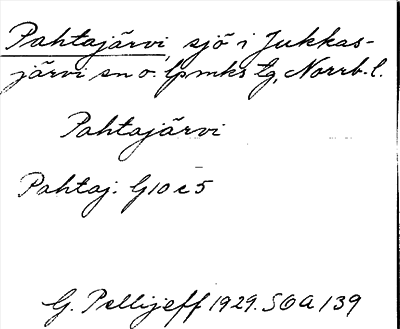 Pahtajärvi, sjö i Jukkas-
järvi sn o. lpmks tg, Norrb. l.
Pahtajärvi
Pahtaj. G10c5
G. Pellijeff 1929. SOA 139